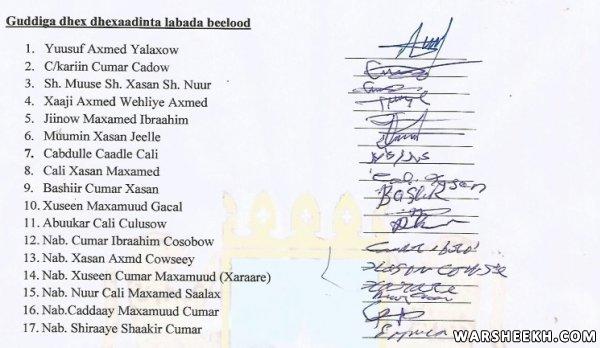 Guddiga dhex dhexaadinta labada beelood
1. Yuusuf Axmed Yalaxow
2. C/kariin Cumar Cadow
3. Sh. Muuse Sh. Xasan Sh. Nuur
4. Xaaji Axmed Wehliye Axmed
5. Jiinow Maxamed Ibraahim
6. Muumin Xasan Jeelle
7. Cabdulle Caadle Cali
8. Cali Xasan Maxamed
Cali Xasan
9. Bashiir Cumar Xasan
BasHiR
10. Xuseen Maxamuud Gacal
11. Abuukar Cali Culusow
12. Nab. Cumar Ibraahim Cosobow
13. Nab. Xasan Axmd Cowseey
14. Nab. Xuseen Cumar Maxamuud (Xaraare)
15. Nab. Nuur Cali Maxamed Saalax
16. Nab.Caddaay Maxamuud Cumar
17. Nab. Shiraaye Shaakir Cumar
WARSHEEKH.COM